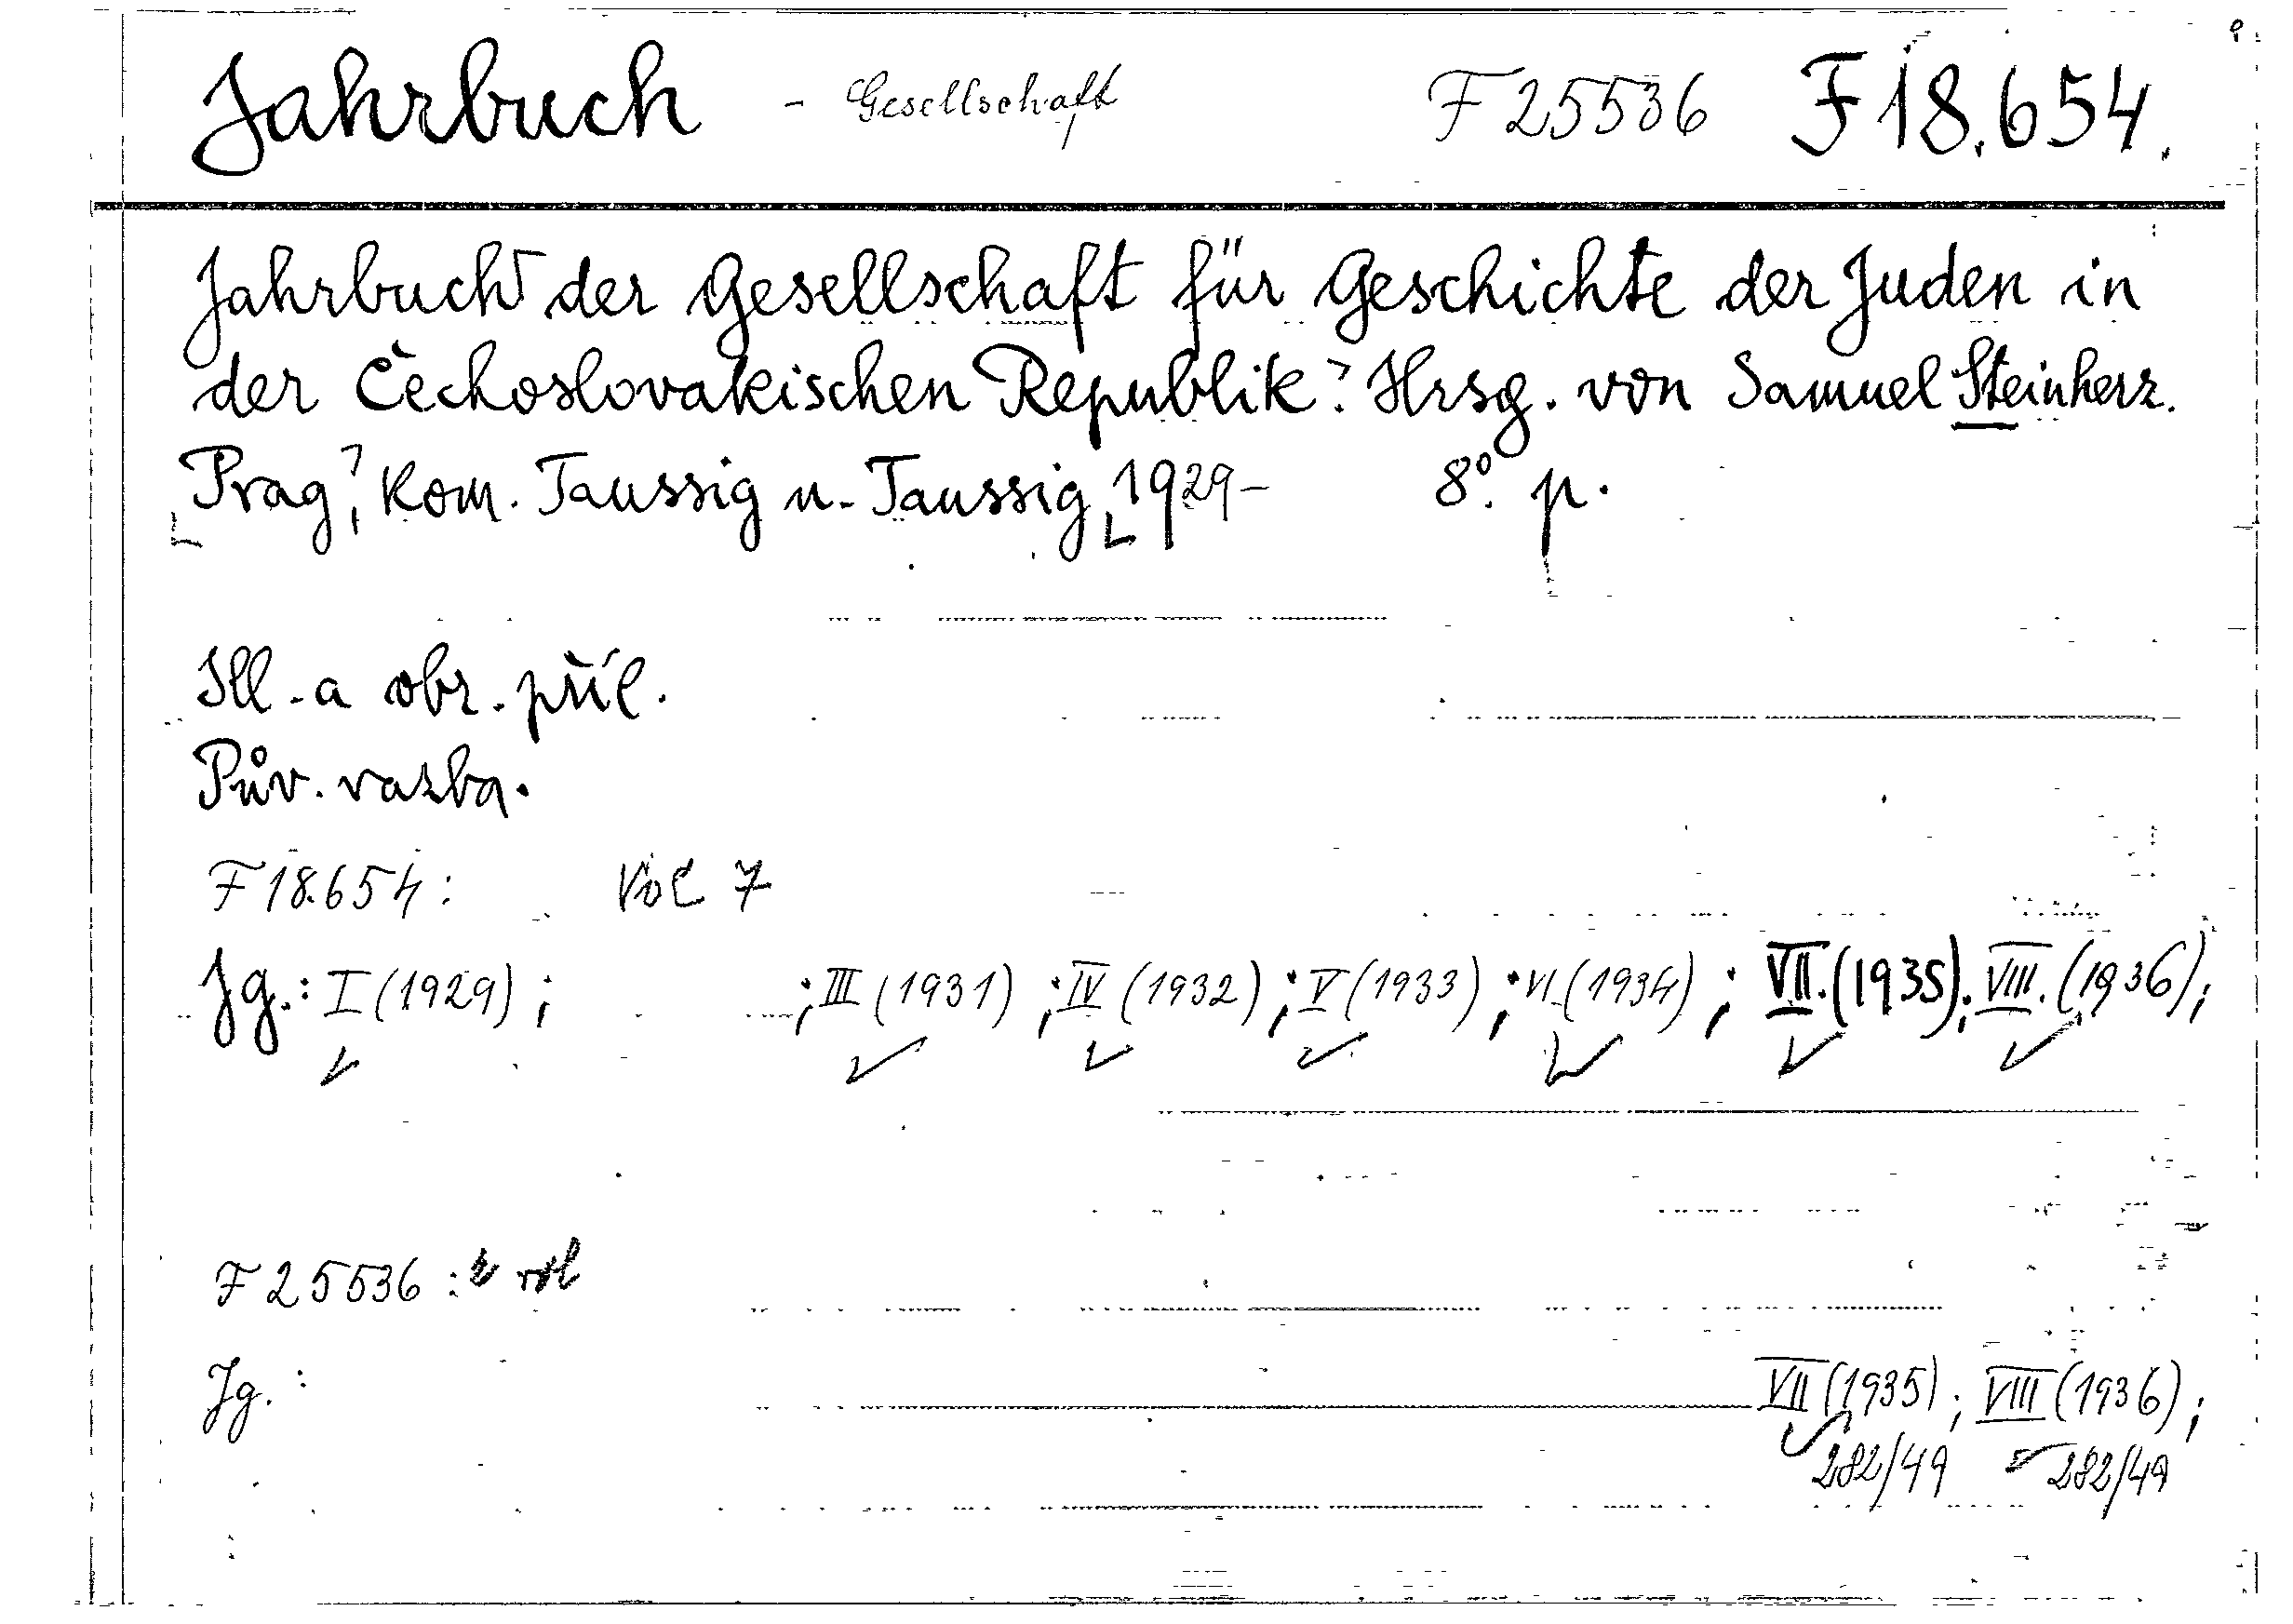 Jahrbuch - Gesellschaft F 25536 F 18.654.
Jahrbuch der Gesellschaft für Geschichte der Juden in
der Čechoslovakischen Republik. Hrsg. von Samuel Steinherz.
Prag, Kom. Taussig u. Taussig 1929- 8° p.
Ill. a obr. příl.
Pův. vazba.
F 18.654: Vol 7
Jg.: I (1929); ; III (1931) ; IV (1932) ; V (1933) ; VI. (1934) ; VII. (1935). ; VIII. (1936);
F 25536 :
Jg. : VII (1935) ; VIII (1936) ;
282/49 282/49